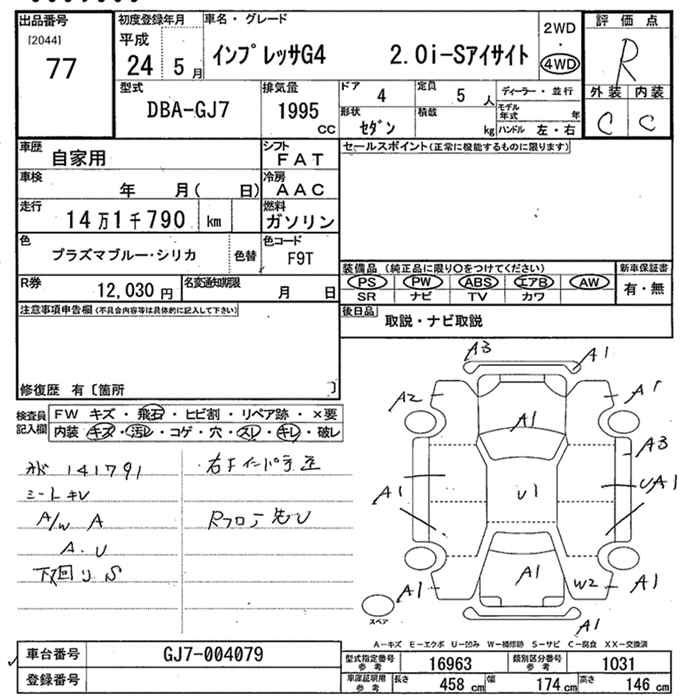 出品番号
[2044]
77
初度登録年月
平成
24 5月
車名・グレード
インプレッサG4 2.0i-Sアイサイト
2WD
・
4WD
評価点
R
外装 内装
C C
型式
DBA-GJ7
排気量
1995
cc
ドア
4
定員
5人
形状
セダン
積載
kg
ディーラー・並行
モデル年式 年
ハンドル 左・右
車歴
自家用
シフト
FAT
セールスポイント(正常に機能するものに限ります)
車検
年 月( 日)
冷房
AAC
走行
14万1千790 km
燃料
ガソリン
色
プラズマブルー・シリカ
色替
色コード
F9T
R券
12,030円
名変通知期限
月 日
装備品(純正品に限り○をつけてください)
PS PW ABS エアB AW
SR ナビ TV カワ
新車保証書
有・無
後日品
取説・ナビ取説
注意事項申告欄(不具合内容等は具体的に記入して下さい)
修復歴 有〔箇所 〕
検査員記入欄
FW キズ・飛石・ヒビ割・リペア跡・×要
内装 キズ・汚レ・コゲ・穴・スレ・キレ・破レ
141791
A/W A
A.U
下回りS
A3 A1
A2 A1
A1
A3
A1 U1 UA1
A1 A1 W2 A1
A1
スペア
A-キズ E-エクボ U-凹み W-補修跡 S-サビ C-腐食 XX-交換済
車台番号
GJ7-004079
登録番号
型式指定番号参考
16963
類別区分番号参考
1031
車庫証明用参考
長さ
458 cm
幅
174 cm
高さ
146 cm